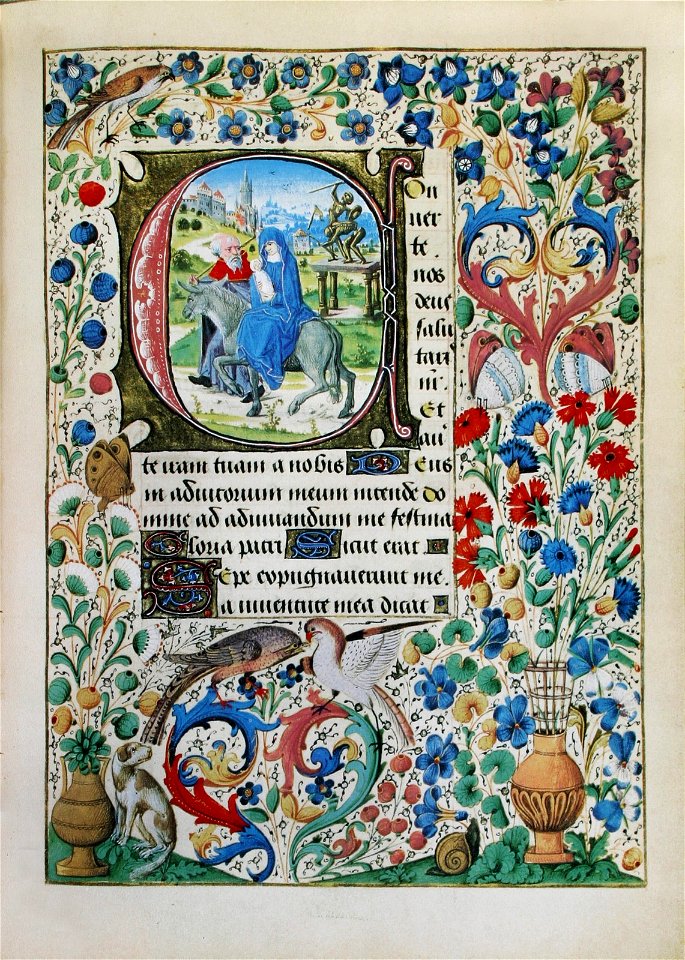 COn
uer
te.
nos
deus
salu
tari
nr̄.
Et
au
te iram tuam a nobis Deus
in adiutorium meum intende Do
mine ad adiuuandum me festina
Gloria patri Sicut erat
Sepe expugnauerunt me
a iuuentute mea dicat